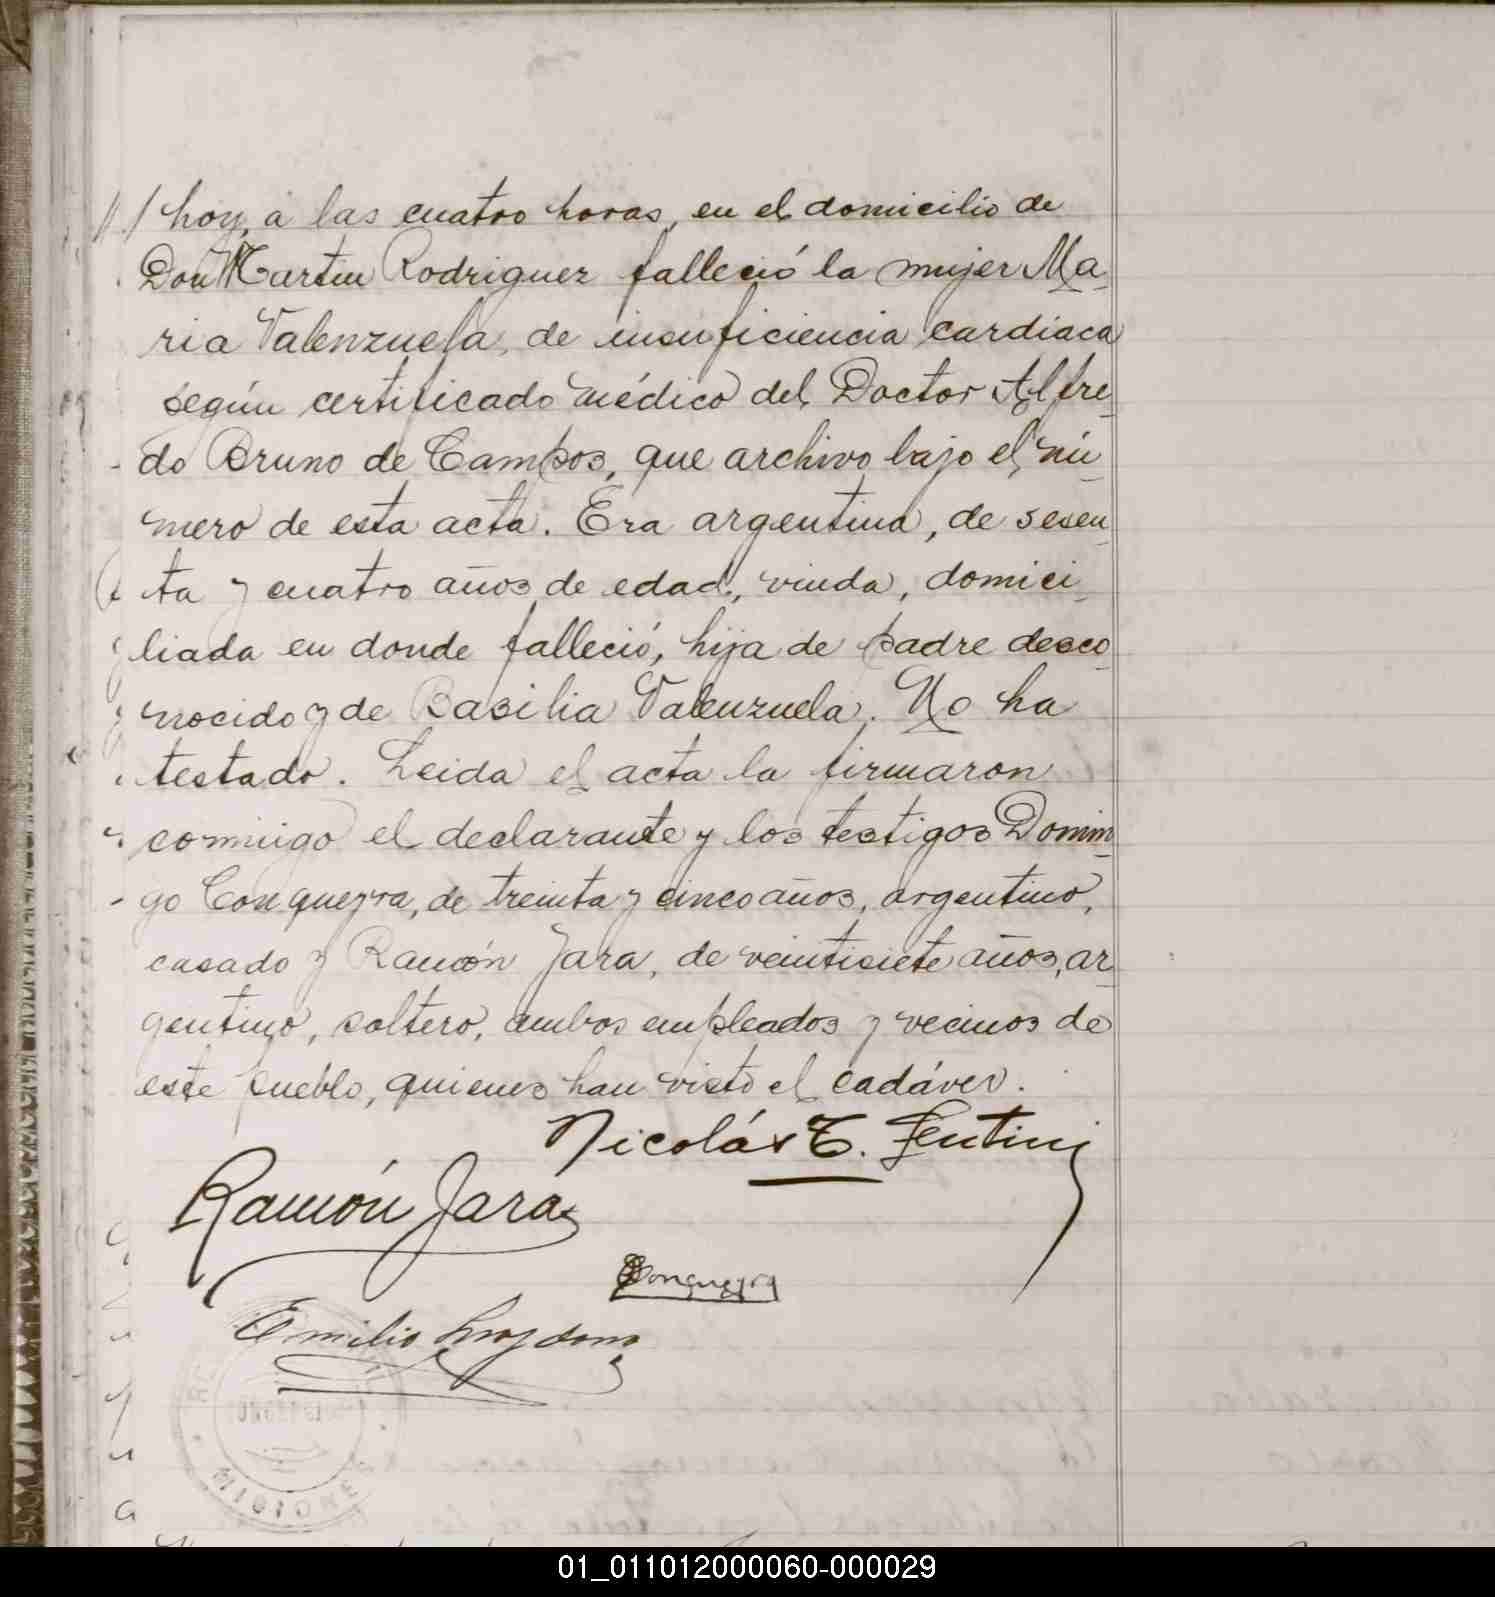 // / hoy, a las cuatro horas, en el domicilio de
Don Martin Rodriguez falleció la mujer Ma
ria Valenzuela, de insuficiencia cardiaca
según certificado médico del Doctor Alfre
do Bruno de Campos, que archivo bajo el nú
mero de esta acta. Era argentina, de sesen
ta y cuatro años de edad, viuda, domici
liada en donde falleció, hija de padre desco
nocido y de Basilia Valenzuela. No ha
testado. Leida el acta la firmaron
conmigo el declarante y los testigos Domin
go Conqueyra, de treinta y cinco años, argentino,
casado y Ramón Jara, de veintisiete años, ar
gentino, soltero, ambos empleados y vecinos de
este pueblo, quienes han visto el cadáver.
Nicolás T. Gentini
Ramón Jara
Conqueyra
Emilio
MISIONES
01_011012000060-000029